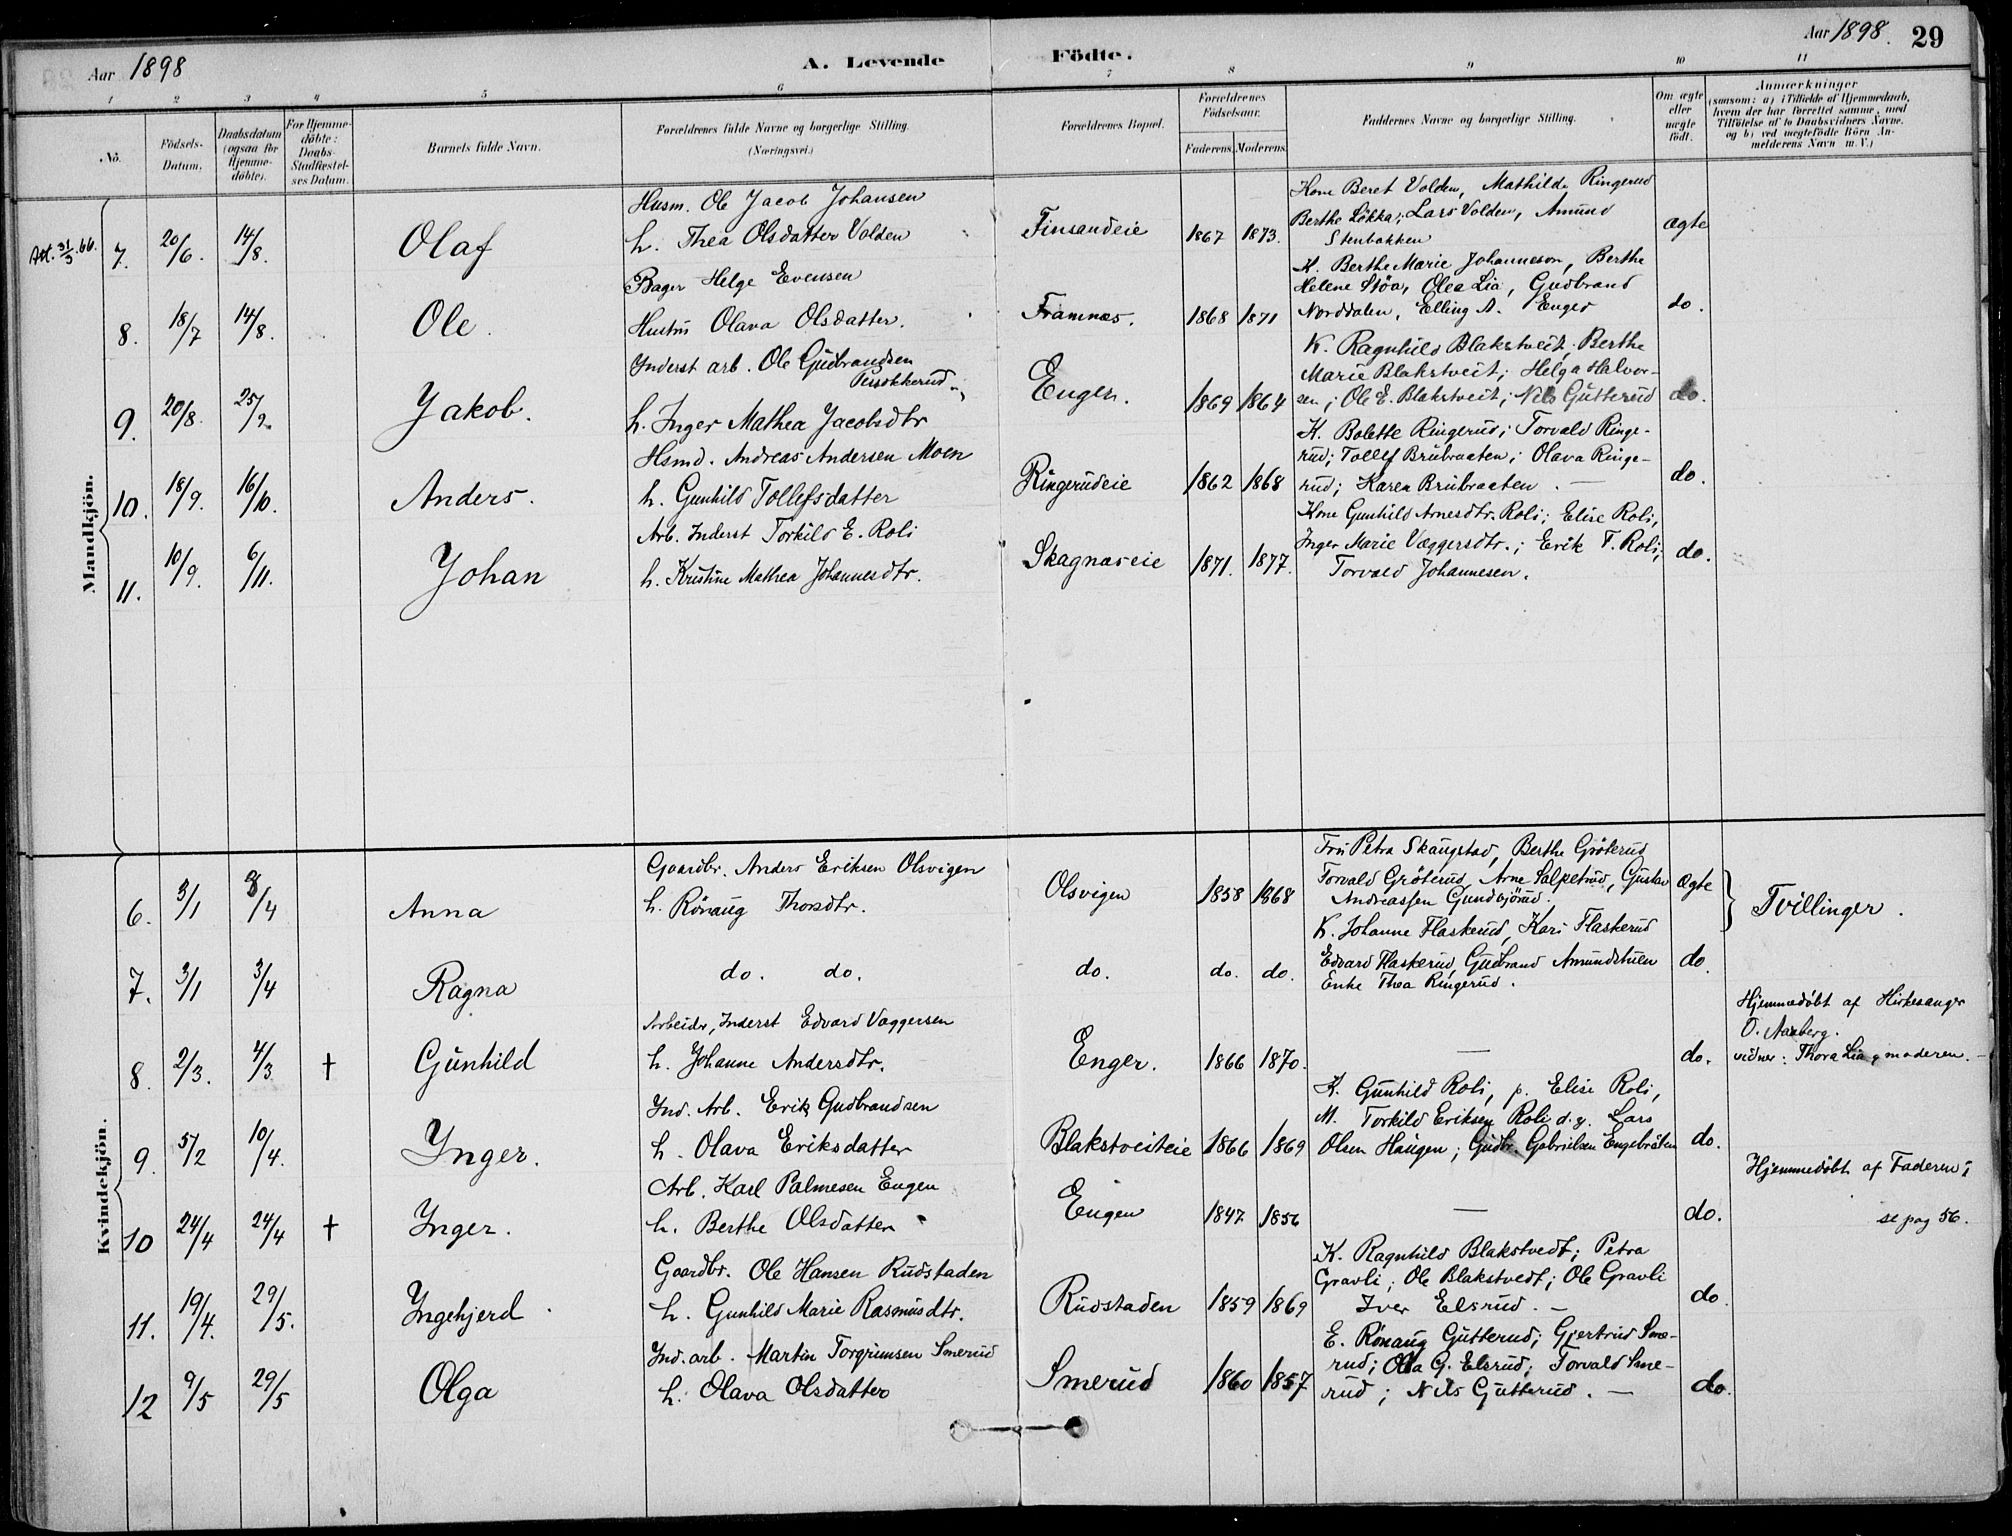 Aar 1898
A. Levende Födte.
Aar 1898.
29
1 2 3 4 5 6 7 8 9 10 11
No.
Födsels-Datum.
Daabsdatum (ogsaa for Hjemme-döbte).
For Hjemme-döbte: Daabs-Stadfæstel-ses Datum.
Barnets fulde Navn.
Forældrenes fulde Navne og borgerlige Stilling. (Næringsvei.)
Forældrenes Bopæl.
Forældrenes Födselsaar.
Faderens. Moderens.
Faddernes Navne og borgerlige Stilling.
Om ægte eller uægte födt.
Anmærkninger
(saasom: a) i Tilfælde af Hjemmedaab,
hvem der har forrettet samme, med
Tilföielse af to Daabsvidners Navne.
og b) ved uægtefödte Börn An-
melderens Navn m. V.)
Mandkjön.
Att. 31/3.66. 7. 20/6. 14/8. Olaf
Husm. Ole Jacob Johansen
h. Thea Olsdatter Volden
Finsandeie 1867 1873.
Kone Beret Volden, Mathilde Ringerud
Berthe Løkka; Lars Volden, Amund
Stenbakken
ægte
8. 18/7 14/8. Ole.
Bager Helge Evensen
Hustru Olava Olsdatter.
Framnæs. 1868 1871
K. Berthe Marie Johanneson, Berthe
Helene Støa, Olea Lia, Gudbrand
Norddalen, Elling A. Enger
do.
9. 20/8. 25/9. Jakob.
Inderst arb. Ole Gudbrandsen
h. Inger Mathea Jacobsdtr
Enger. 1869 1864
K. Ragnhild Blakstveit; Berthe
Marie Blakstveit; Helga Halvor-
sen; Ole E. Blakstveit; Nils Gutterud
do.
10. 18/9. 16/10. Anders.
Hsmd. Andreas Andersen Moen
h. Gunhild Tollefsdatter
Ringerudeie 1862 1868
K. Bolette Ringerud; Torvald Ringe-
rud; Tollef Brubraaten; Olava Ringe-
rud; Karen Brubraaten. —
do.
11. 10/9. 6/11. Johan
Arb. Inderst Torkild E. Roli
h. Kristine Mathea Johannesdtr.
Skagnæseie 1871. 1877.
Kone Gunhild Arnesdtr. Roli; Elise Roli,
Inger Marie Væggersdtr.; Erik T. Roli;
Torvald Johannesen.
do.
Kvindekjön.
6. 3/1 3/4 Anna
Gaardbr. Anders Eriksen Olsvigen
h. Rönaug Thorsdtr.
Olsvigen 1858 1868
Fru Petra Skaugstad, Berthe Gröterud
Torvald Gröterud, Arne Salpetrud, Gustav
Andreassen Gundbjörud.
Ægte
Tvillinger.
7. 3/1 3/4 Ragna
do. do.
do. do. do.
K. Johanne Flaskerud, Kari Flaskerud
Edvard Flaskerud, Gudbrand Amundstuen
Enke Thea Ringerud.
do.
8. 2/3. 4/3 † Gunhild
Arbeider, Inderst Edvard Vaggersen
h. Johanne Andersdtr.
Enger. 1866 1870.
—
do.
Hjemmedöbt af Kirkesanger
O. Aaberg.
vidner: Thora Lia, moderen. —
9. 5/2 10/4. Inger.
Ind. Arb. Erik Gudbrandsen
h. Olava Eriksdatter
Blakstveiteie 1866 1869
K. Gunhild Roli, p. Elise Roli,
M. Torkild Eriksen Roli d.y. Lars
Olsen Haugen; Gudbr. Gabrielsen Engebråten
do.
10 24/4 24/4 † Inger.
Arb. Karl Palmesen Engen
h. Berthe Olsdatter
Engen 1847 1856
—
do.
Hjemmedöbt af Faderen;
se pag 56.
11. 19/4. 29/5. Ingebjerd
Gaardbr. Ole Hansen Rudstaden
h. Gunhild Marie Rasmusdtr.
Rudstaden 1859 1869
K. Ragnhild Blakstvedt; Petra
Gravli; Ole Blakstvedt; Ole Gravli
Iver Elsrud. —
do.
12 9/5 29/5 Olga
Ind. arb. Martin Torgrimsen Smerud
h. Olava Olsdatter
Smerud 1860 1857
E. Rönaug Gutterud; Gjertrud Sme-
rud; Ola G. Elsrud; Torvald Sme-
rud; Nils Gutterud. —
do.